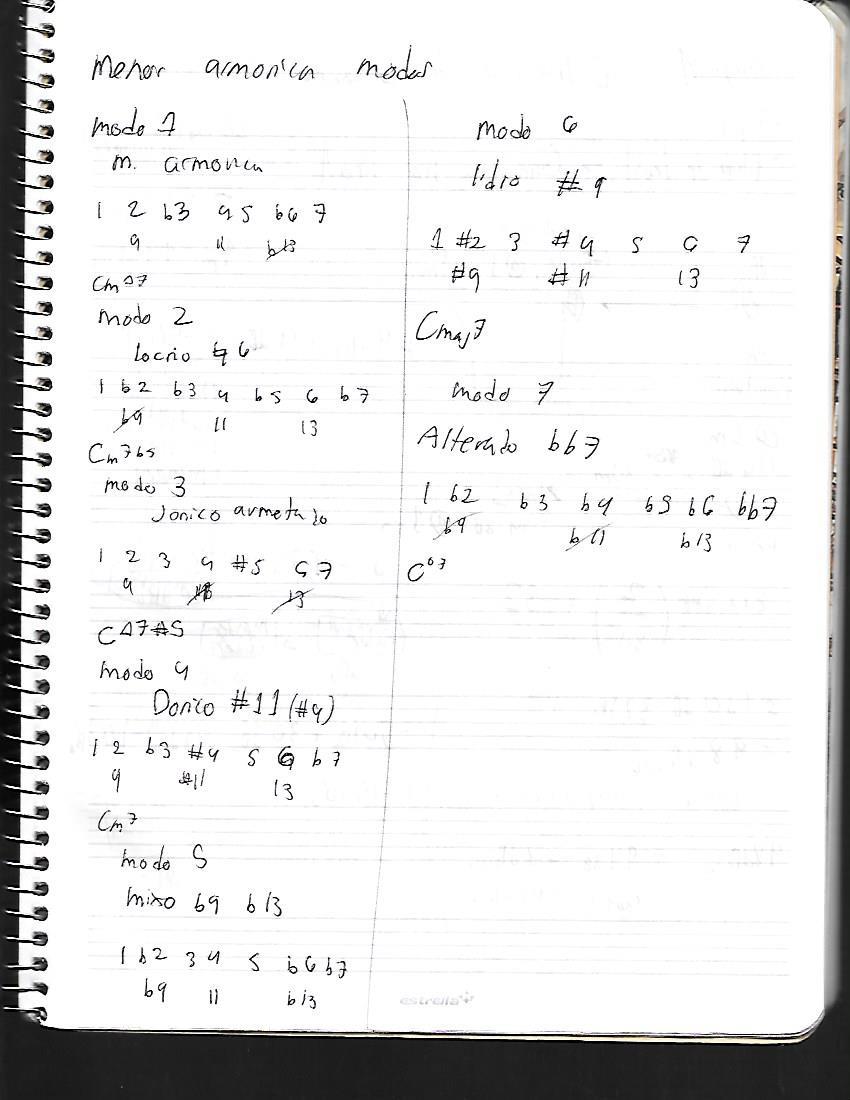 Menor armonica modos
modo 1
m. armonica
1 2 b3 4 5 b6 7
9 11 b13
Cm∆7
modo 2
locrio ♮6
1 b2 b3 4 b5 6 b7
b9 11 13
Cm7b5
modo 3
Jonico aumetado
1 2 3 4 #5 6 7
9 13
C∆7#5
modo 4
Dorico #11 (#4)
1 2 b3 #4 5 6 b7
9 #11 13
Cm7
modo 5
mixo b9 b13
1 b2 3 4 5 b6 b7
b9 11 b13
modo 6
lidio #9
1 #2 3 #4 5 6 7
#9 #11 13
Cmaj7
modo 7
Alterado bb7
1 b2 b3 b4 b5 b6 bb7
b9 b11 b13
C°7
estrella